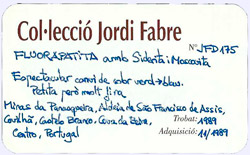 Col·lecció Jordi Fabre
Nº JFD175
FLUORAPATITA amb Siderita i Moscovita
Espectacular canvi de color verd → blau.
Petita però molt fina
Minas da Panasqueira, Aldeia de São Francisco de Assis,
Covilhã, Castelo Branco, Cova da Beira,
Centro, Portugal
Trobat: 1989
Adquisició: 11/1989